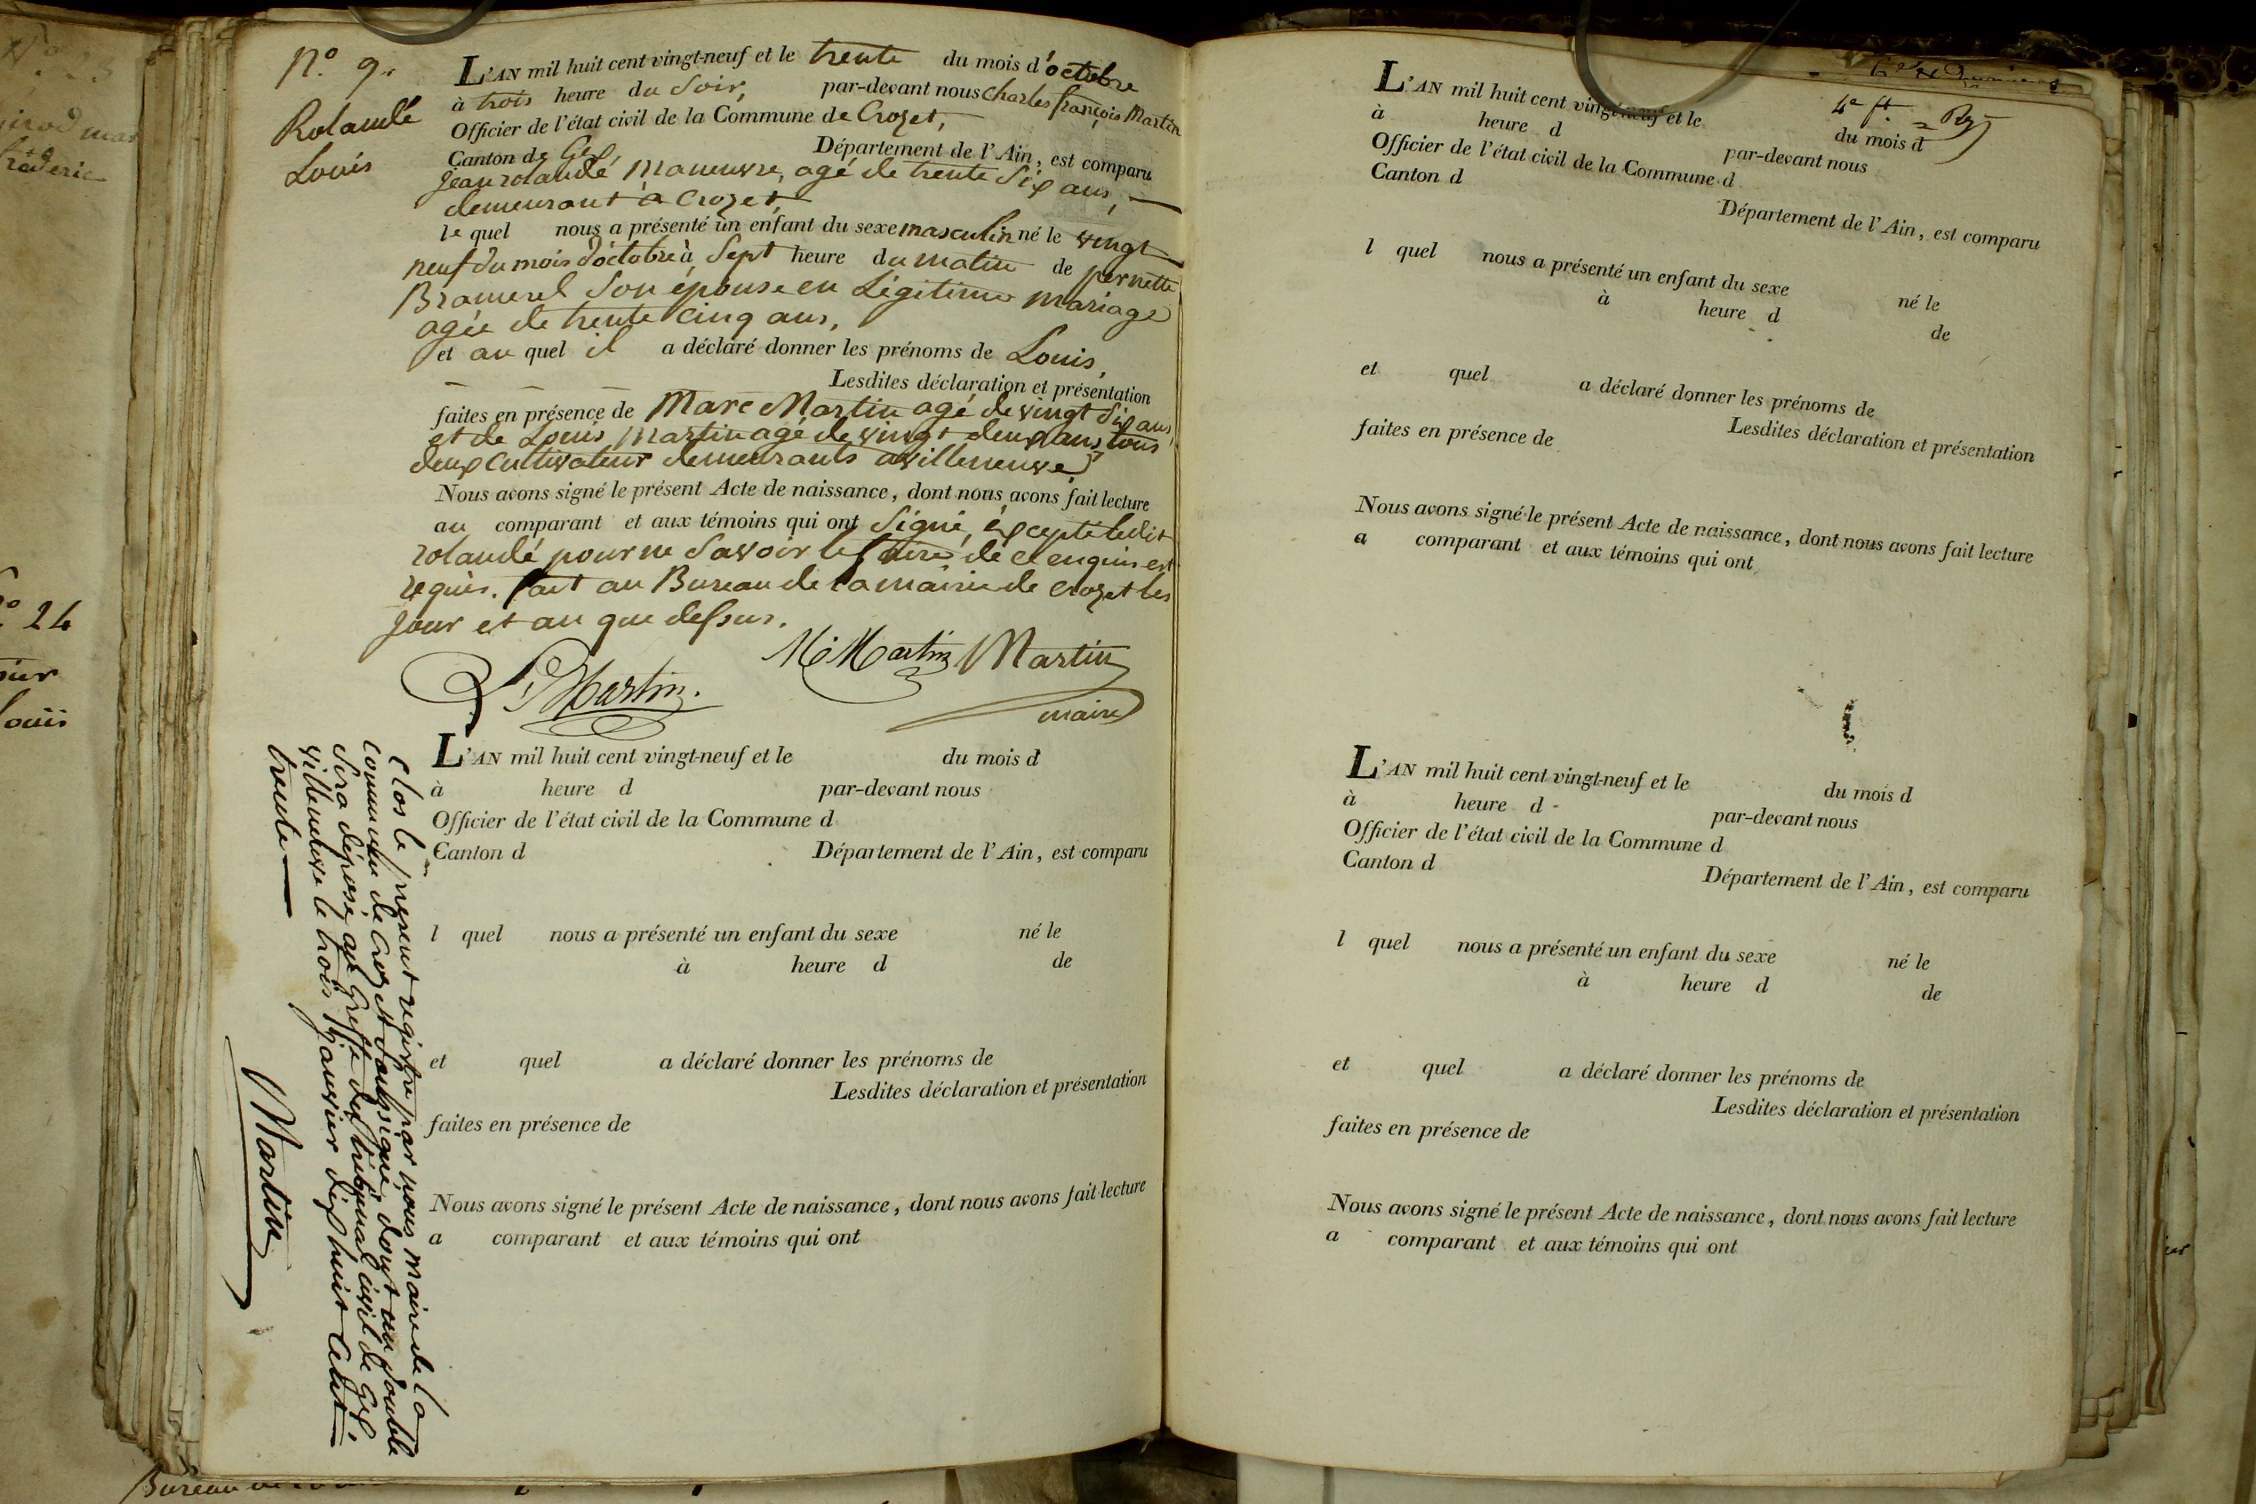 N.º 9.
Rolandé
Louis
L'AN mil huit cent vingt-neuf et le trente du mois d'octobre
à trois heure du Soir, par-devant nous charles françois Martin
Officier de l'état civil de la Commune de Crozet,
Canton de Gex Département de l'Ain, est comparu
Jean rolandé Maneuvre, agé de trente Six ans,
demeurant à Crozet,
le quel nous a présenté un enfant du sexe masculin né le vingt
neuf du mois d'octobre à Sept heure du matin de pernette
Bramerel Son épouse en Légitime mariage
agée de trente cinq ans,
et au quel il a déclaré donner les prénoms de Louis,
Lesdites déclaration et présentation
faites en présence de Marc Martin agé de vingt Six ans,
et de Louis Martin agé de vingt deux ans, tous
deux cultivateur demeurants à villeneuve,
Nous avons signé le présent Acte de naissance, dont nous avons fait lecture
au comparant et aux témoins qui ont Signé, éxcepté ledit
rolandé pour ne Savoir le faire de ce enquis est
requis. fait au Bureau de la mairie de crozet les
jour et an que dessus.
L. Martin. M. Martin Martin
maire
Clos le présent registre par nous maire de la
commune de Crozet Soussigné, dont un double
Sera déposé au Greffe du tribunal civil de Gex,
villeneuve le trois Janvier dix huit Cent
trente
Martin
L'AN mil huit cent vingt-neuf et le du mois d
à heure d par-devant nous
Officier de l'état civil de la Commune d
Canton d Département de l'Ain, est comparu
l quel nous a présenté un enfant du sexe né le
à heure d de
et quel a déclaré donner les prénoms de
Lesdites déclaration et présentation
faites en présence de
Nous avons signé le présent Acte de naissance, dont nous avons fait lecture
a comparant et aux témoins qui ont
4e ft.
L'AN mil huit cent vingt-neuf et le du mois d
à heure d par-devant nous
Officier de l'état civil de la Commune d
Canton d Département de l'Ain, est comparu
l quel nous a présenté un enfant du sexe né le
à heure d de
et quel a déclaré donner les prénoms de
Lesdites déclaration et présentation
faites en présence de
Nous avons signé le présent Acte de naissance, dont nous avons fait lecture
a comparant et aux témoins qui ont
L'AN mil huit cent vingt-neuf et le du mois d
à heure d par-devant nous
Officier de l'état civil de la Commune d
Canton d Département de l'Ain, est comparu
l quel nous a présenté un enfant du sexe né le
à heure d de
et quel a déclaré donner les prénoms de
Lesdites déclaration et présentation
faites en présence de
Nous avons signé le présent Acte de naissance, dont nous avons fait lecture
a comparant et aux témoins qui ont
Nº 24
Bureau